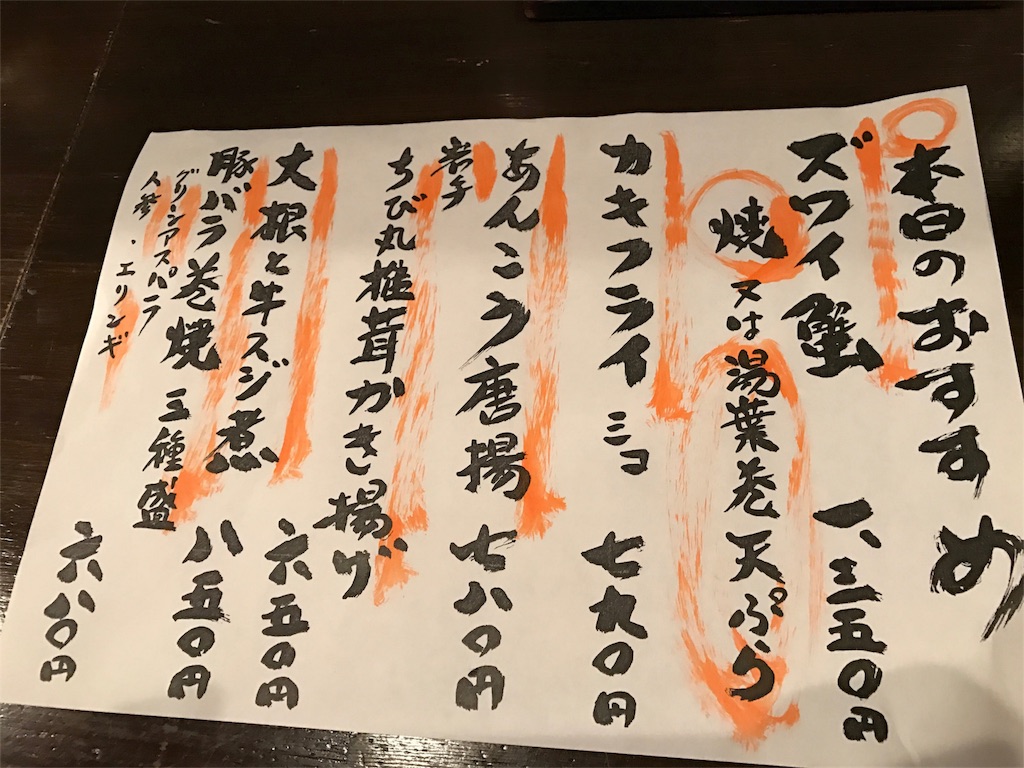 本日のおすすめ
ズワイ蟹 一、三五〇円
焼 又は湯葉巻天ぷら
カキフライ 三コ 七九〇円
あんこう唐揚 七八〇円
岩手
ちび丸椎茸かき揚げ 六五〇円
大根と牛スジ煮 八五〇円
豚バラ巻焼 三種盛 六八〇円
グリーンアスパラ
人参・エリンギ